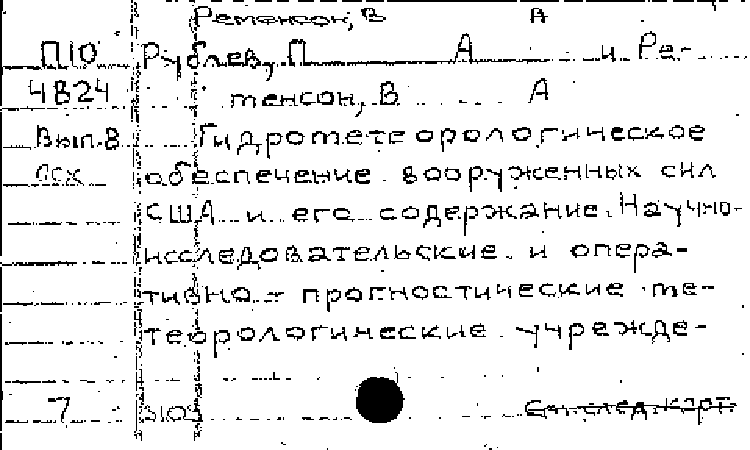 Ременсон, В А
П10 Рублев, П А и Ре-
4В24 менсон, В А
Вып.8 Гидрометеорологическое
ЛСХ обеспечение вооруженных сил
США и его содержание. Научно-
исследовательские и опера-
тивно-прогностические ме-
теорологические учрежде-
7 3103 См. след. карт.